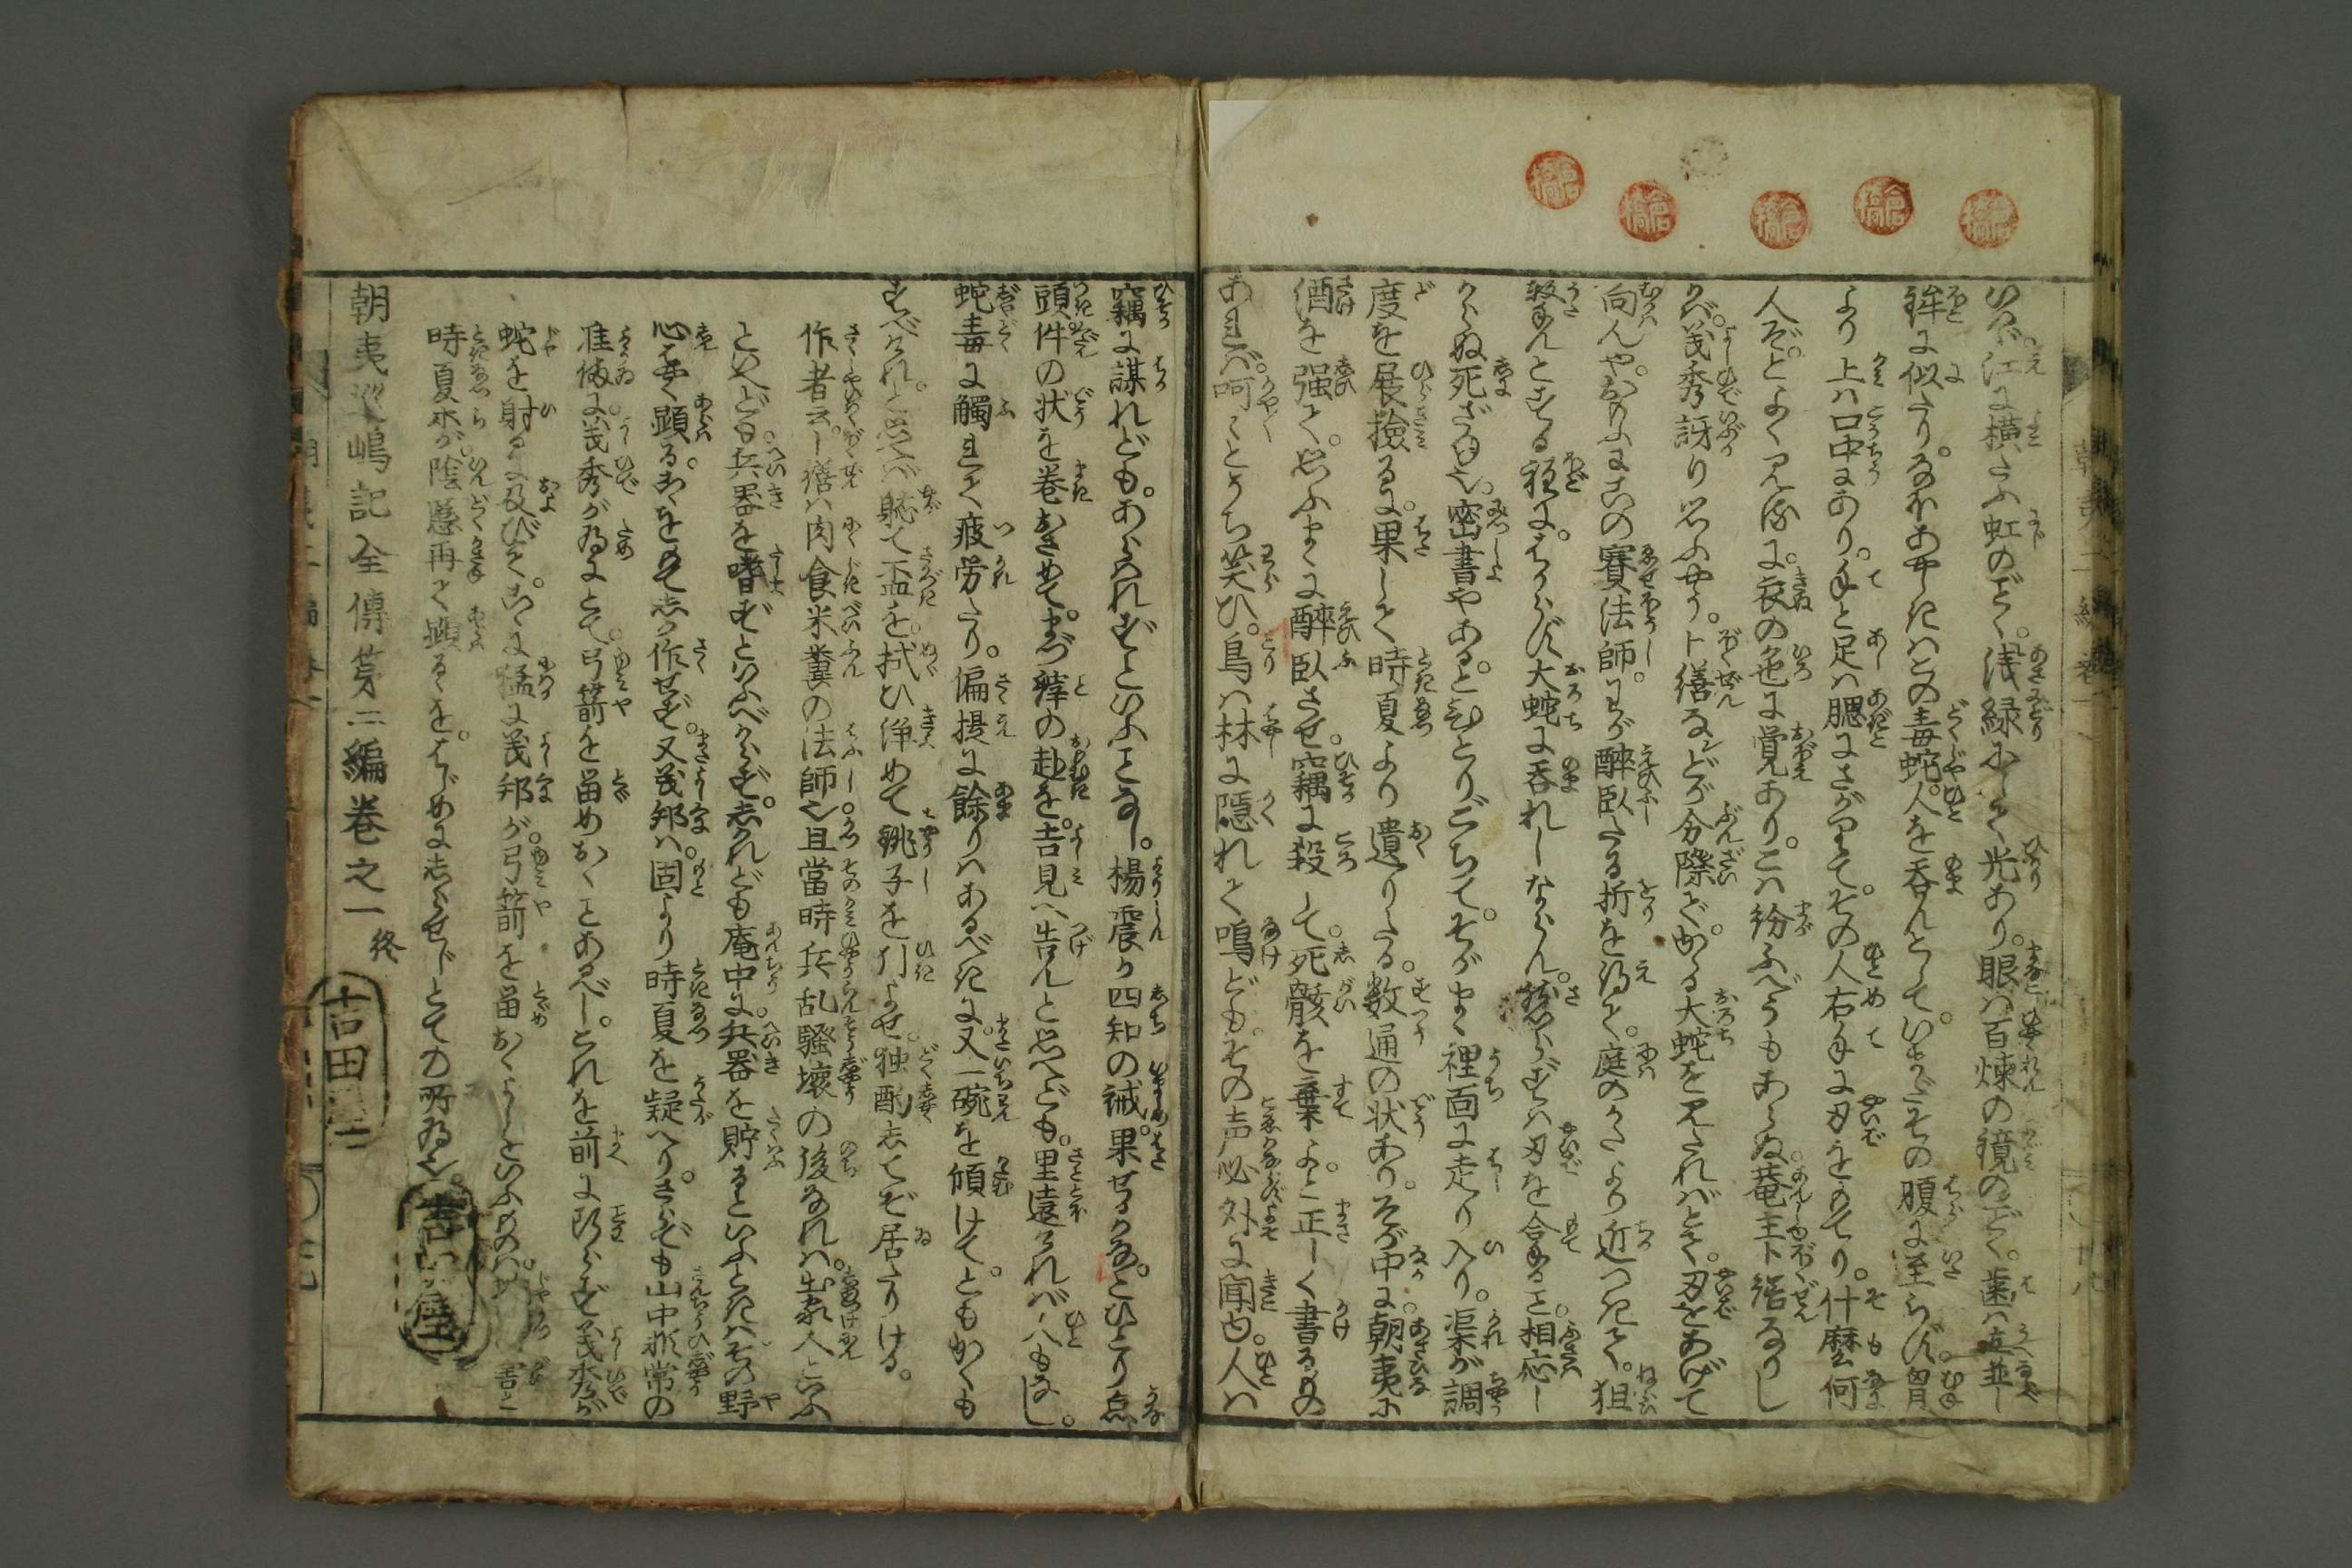 いへバ。江に横たふ虹のごとく。浅緑にして光あり。眼ハ百煉の鏡のごとく。歯ハ並
鉾に似たり。なほあやしきハこの毒蛇。人を呑んとして。いまだその腹に至らず。胸
より上ハ口中にあり。手と足ハ腮にさがりて。その人右手に刃をもてり。什麼何
人ぞ。とよく見るに。衣の色に覚あり。こハ紛ふべうもあらぬ。菴主卜繕なりし
かバ。義秀訝り思ふやう。卜繕などが分際で。かゝる大蛇を見たれバとて。刃をあげて
向んや。おもふにこの賽法師。わが酔臥たる折を得て。庭のかたより近つきて。狙
撃んとする程に。はからず大蛇に呑れしならん。然らずハ刃を合すること。相応し
からぬ死ざま也。密書やある。とひとりごちて。そがまゝ裡面に走り入り。渠が調
度を展撿るに。果して時夏より遺りたる。数通の状あり。そが中に。朝夷に
酒を強て。思ふまゝに酔臥させ。竊に殺して。死骸を棄よ。と正しく書るもの
あれバ。呵〻とうち笑ひ。鳥ハ林に隠れて鳴ども。その声必外に聞ゆ。人ハ
竊に謀れども。あらハれずといふことなし。楊震が四知の誡。果せるかな。とひとり点
頭。件の状を巻おさめて。まづ縡の赴を。吉見へ告んと思へども。里遠けれバ人もなし。
蛇毒に觸れて疲労たり。偏提に餘りハあるべきに。又一碗を傾けて。ともかくも
すべけれ。と思へバ軈て盃を。拭ひ浄めて銚子を引よせ。独酌してぞ居たりける。
作者云。卜繕ハ肉食米糞の法師也。且當時兵乱騒壊の後なれハ。出家人といふ
といへども。兵器を嗜ずといふべからず。しかれども庵中に。兵器を貯るといふときハその野
心はやく顕る。故をもてしか作せず。又義邦ハ。固より時夏を疑へり。さバれども山中非常の
准備に。義秀が為にとて。弓箭を留めおくことあるべし。これを前に断らず。義秀が
蛇を射るに及びて。こゝに猛に義邦が。弓箭を留おくよしをいふものハ。
時夏氶が。陰慝再て顕るゝを。はじめにしらせじとての所為也。
朝夷巡嶋記全傳第二編巻之一終
吉田